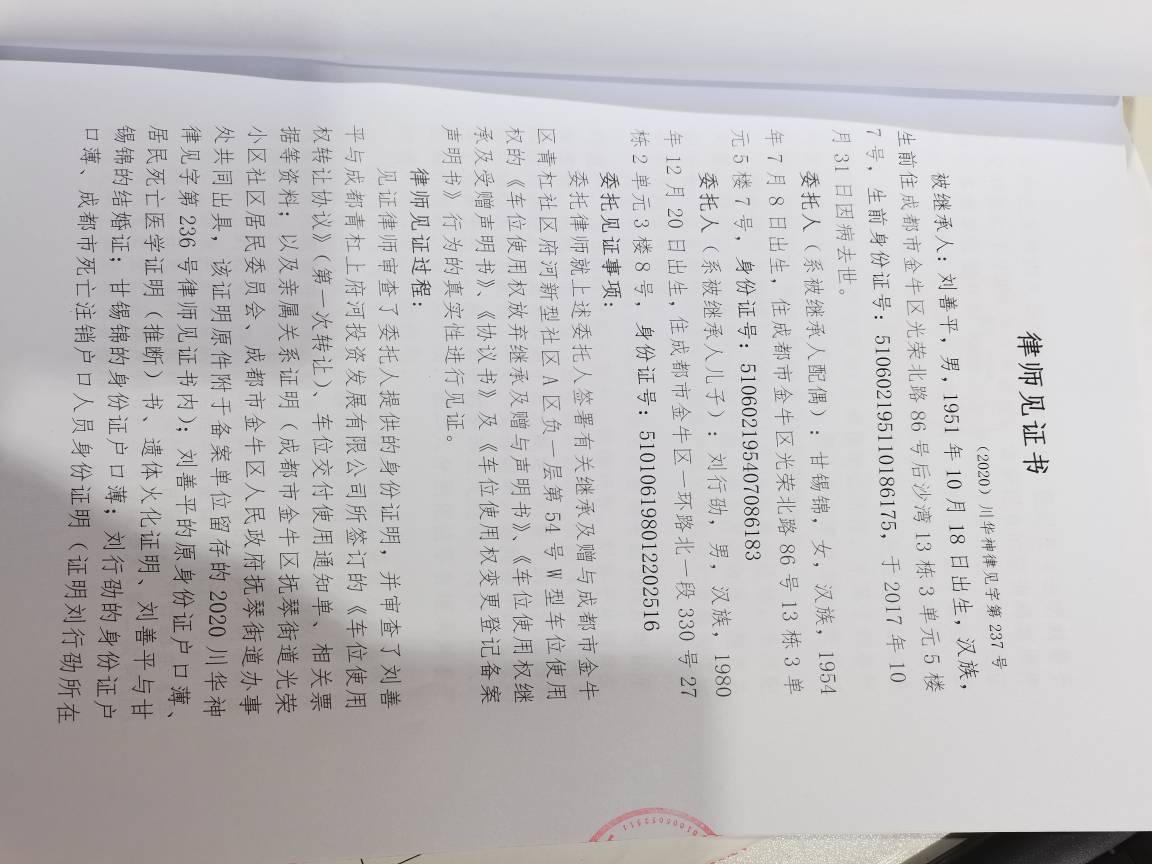 律师见证书
（2020）川华神律见字第 237 号
被继承人：刘善平，男，1951 年 10 月 18 日出生，汉族，
生前住成都市金牛区光荣北路 86 号后沙湾 13 栋 3 单元 5 楼
7 号，生前身份证号：510602195110186175，于 2017 年 10
月 31 日因病去世。
委托人（系被继承人配偶）：甘锡锦，女，汉族，1954
年 7 月 8 日出生，住成都市金牛区光荣北路 86 号 13 栋 3 单
元 5 楼 7 号，身份证号：510602195407086183
委托人（系被继承人儿子）：刘行劭，男，汉族，1980
年 12 月 20 日出生，住成都市金牛区一环路北一段 330 号 27
栋 2 单元 3 楼 8 号，身份证号：510106198012202516
委托见证事项：
委托律师就上述委托人签署有关继承及赠与成都市金牛
区青杠社区府河新型社区 A 区负一层第 54 号 W 型车位使用
权的《车位使用权放弃继承及赠与声明书》、《车位使用权继
承及受赠声明书》、《协议书》及《车位使用权变更登记备案
声明书》行为的真实性进行见证。
律师见证过程：
见证律师审查了委托人提供的身份证明，并审查了刘善
平与成都青杠上府河投资发展有限公司所签订的《车位使用
权转让协议》（第一次转让）、车位交付使用通知单、相关票
据等资料；以及亲属关系证明（成都市金牛区抚琴街道光荣
小区社区居民委员会、成都市金牛区人民政府抚琴街道办事
处共同出具，该证明原件附于备案单位留存的 2020 川华神
律见字第 236 号律师见证书内）；刘善平的原身份证户口薄、
居民死亡医学证明（推断）书、遗体火化证明、刘善平与甘
锡锦的结婚证；甘锡锦的身份证户口薄；刘行劭的身份证户
口薄、成都市死亡注销户口人员身份证明（证明刘行劭所在